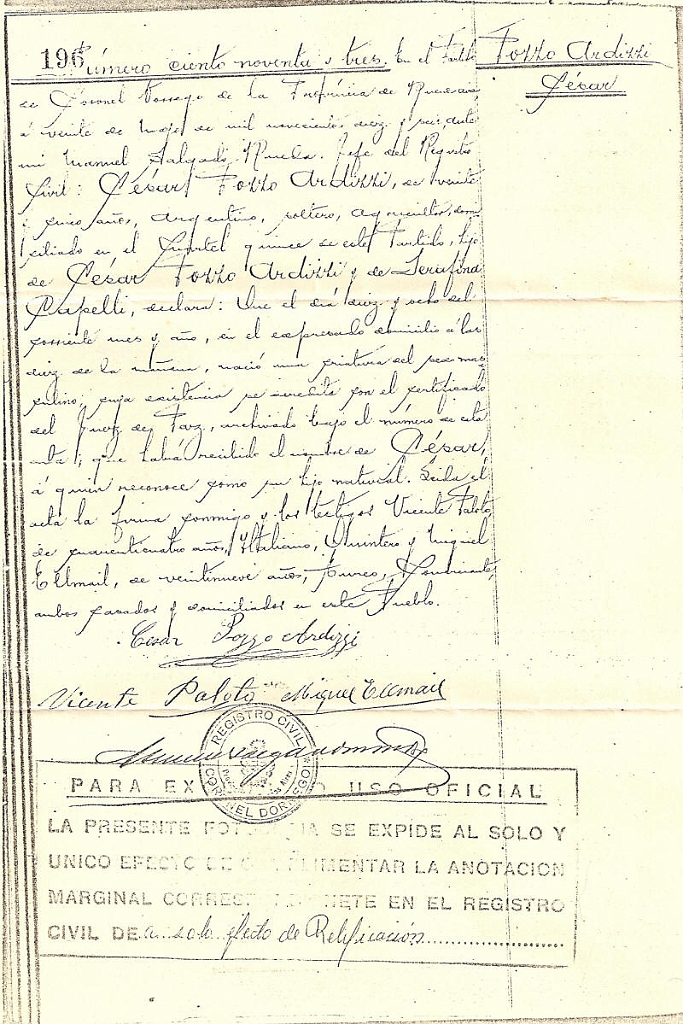 196
Número ciento noventa y tres. En el Partido
Pozzo Ardizzi
César
de Coronel Dorrego de la Provincia de Buenos Aires
á veinte de Mayo de mil novecientos diez y seis, ante
mi Manuel Salgado Rueda. Jefe del Registro
Civil: César Pozzo Ardizzi, de veinte
y cinco años, argentino, soltero, agricultor, domi
ciliado en el Cuartel quince de este Partido, hijo
de César Pozzo Ardizzi y de Serafina
Capelli, declara: Que el día diez y ocho del
corriente mes y año, en el expresado domicilio á las
diez de la mañana, nació una criatura del sexo mas
culino, cuya existencia se acredita con el certificado
del Juez de Paz, archivado bajo el número de esta
acta; que había recibido el nombre de César,
á quien reconoce como su hijo natural. Leida el
acta la firma conmigo y los testigos Vicente Paloto,
de cuarenticuatro años, Italiano, Quintero y Miguel
Ellmail, de veintinueve años, turco, Comerciante,
ambos casados y domiciliados en este Pueblo.
Cesar Pozzo Ardizzi
Vicente Paloto Miguel Ellmail
REGISTRO CIVIL
CORONEL DORREGO
PARA EX USO OFICIAL
LA PRESENTE FOTOCOPIA SE EXPIDE AL SOLO Y
UNICO EFECTO DE CUMPLIMENTAR LA ANOTACION
MARGINAL CORRES NETE EN EL REGISTRO
CIVIL DE a solo efecto de Retificación